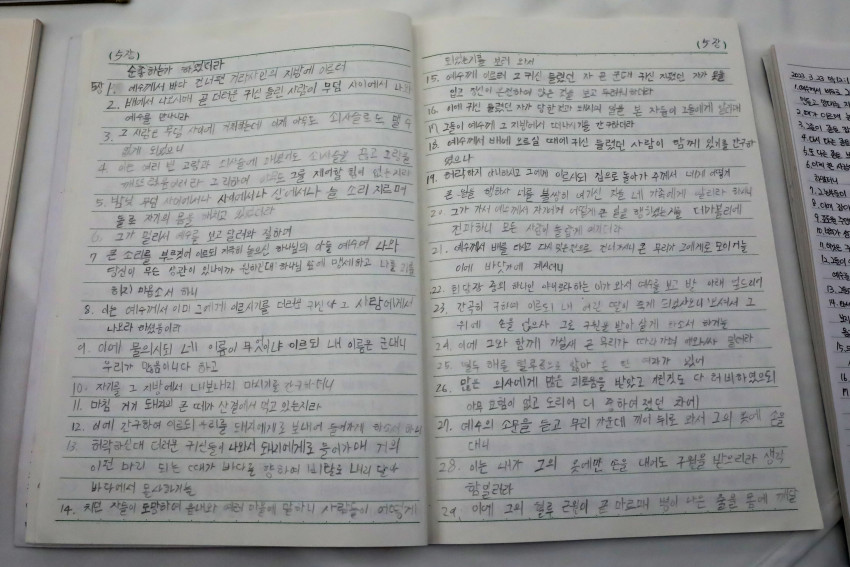 (5장)
순종하는가 하였더라
5장 1. 예수께서 바다 건너편 거라사인의 지방에 이르러
2. 배에서 나오시매 곧 더러운 귀신 들린 사람이 무덤 사이에서 나와
예수를 만나니라
3. 그 사람은 무덤 사이에 거처하는데 이제 아무도 쇠사슬로도 맬 수
없게 되었으니
4. 이는 여러 번 고랑과 쇠사슬에 매였어도 쇠사슬을 끊고 고랑을
깨뜨렸음이러라 그리하여 아무도 그를 제어할 힘이 없는지라
5. 밤낮 무덤 사이에서나 산에서나 늘 소리 지르며
돌로 자기의 몸을 해치고 있었더라
6. 그가 멀리서 예수를 보고 달려와 절하며
7 큰 소리로 부르짖어 이르되 지극히 높으신 하나님의 아들 예수여 나와
당신이 무슨 상관이 있나이까 원하건대 하나님 앞에 맹세하고 나를 괴롭
히지 마옵소서 하니
8. 이는 예수께서 이미 그에게 이르시기를 더러운 귀신아 그 사람에게서
나오라 하셨음이라
9. 이에 물으시되 네 이름이 무엇이냐 이르되 내 이름은 군대니
우리가 많음이니다 하고
10. 자기를 그 지방에서 내보내지 마시기를 간구하더니
11. 마침 거기 돼지의 큰 떼가 산 곁에서 먹고 있는지라
12. 이에 간구하여 이르되 우리를 돼지에게로 보내어 들어가게 하소서 하니
13. 허락하신대 더러운 귀신들이 나와서 돼지에게로 들어가매 거의
이천 마리 되는 떼가 바다를 향하여 비탈로 내리달아
바다에서 몰사하거늘
14. 치던 자들이 도망하여 읍내와 여러 마을에 말하니 사람들이 어떻게
(5장)
되었는지를 보러 와서
15. 예수께 이르러 그 귀신 들렸던 자 곧 군대 귀신 지폈던 자가 옷을
입고 정신이 온전하여 앉은 것을 보고 두려워하더라
16. 이에 귀신 들렸던 자가 당한 것과 돼지의 일을 본 자들이 그들에게 알리매
17. 그들이 예수께 그 지방에서 떠나시기를 간구하더라
18. 예수께서 배에 오르실 때에 귀신 들렸던 사람이 함께 있기를 간구하
였으나
19. 허락하지 아니하시고 그에게 이르시되 집으로 돌아가 주께서 네게 어떻게
큰 일을 행하사 너를 불쌍히 여기신 것을 네 가족에게 알리라 하시니
20. 그가 가서 예수께서 자기에게 어떻게 큰 일을 행하셨는지를 데가볼리에
전파하니 모든 사람이 놀랍게 여기더라
21. 예수께서 배를 타시고 다시 맞은편으로 건너가시니 큰 무리가 그에게로 모이거늘
이에 바닷가에 계시더니
22. 회당장 중의 하나인 야이로라 하는 이가 와서 예수를 보고 발 아래 엎드리어
23. 간곡히 구하여 이르되 내 어린 딸이 죽게 되었사오니 오셔서 그
위에 손을 얹으사 그로 구원을 받아 살게 하소서 하거늘
24. 이에 그와 함께 가실새 큰 무리가 따라가며 에워싸 밀더라
25. 열두 해를 혈루증으로 앓아 온 한 여자가 있어
26. 많은 의사에게 많은 괴로움을 받았고 가진 것도 다 허비하였으되
아무 효험이 없고 도리어 더 중하여졌던 차에
27. 예수의 소문을 듣고 무리 가운데 끼어 뒤로 와서 그의 옷에 손을
대니
28. 이는 내가 그의 옷에만 손을 대어도 구원을 받으리라 생각
함일러라
29. 이에 그의 혈루 근원이 곧 마르매 병이 나은 줄을 몸에 깨달